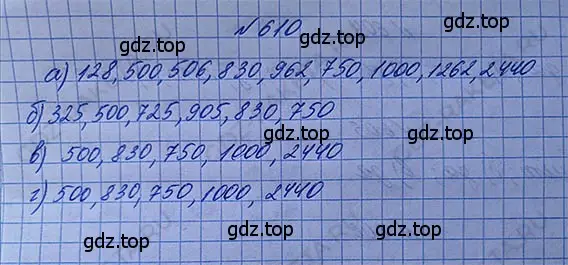 № 610
gdz.top
а) 128, 500, 506, 830, 962, 750, 1000, 1262, 2440
gdz.top gdz.top gdz.top
б) 325, 500, 725, 905, 830, 750
gdz.top
в) 500, 830, 750, 1000, 2440
gdz.top gdz.top
г) 500, 830, 750, 1000, 2440
gdz.top gdz.top gdz.top